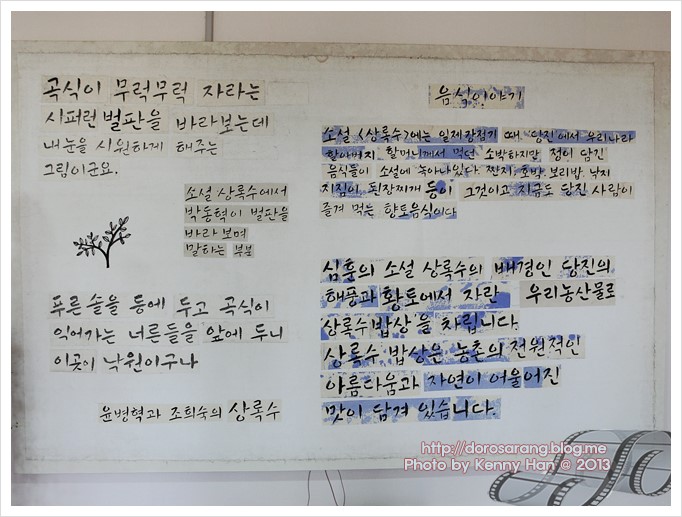 곡식이 무럭무럭 자라는
시퍼런 벌판을 바라보는데
내 눈을 시원하게 해주는
그림이군요.
소설 상록수에서
박동혁이 벌판을
바라보며
말하는 부분
푸른 솔을 등에 두고 곡식이
익어가는 너른들을 앞에 두니
이곳이 낙원이구나
윤병혁과 조희숙의 상록수
음식이야기
소설 <상록수>에는 일제강점기 때 당진에서 우리나라
할아버지 할머니께서 먹던 소박하지만 정이 담긴
음식들이 소설에 녹아나있다. 짠지, 호박, 보리밥, 낙지
지짐이 된장찌개 등이 그것이고 지금도 당진 사람이
즐겨 먹는 향토음식이다
심훈의 소설 상록수의 배경인 당진의
해풍과 황토에서 자란 우리농산물로
상록수밥상을 차립니다.
상록수 밥상은 농촌의 전원적인
아름다움과 자연이 어울어진
맛이 담겨 있습니다.
http://dorosarang.blog.me
Photo by Kenny Han @ 2013